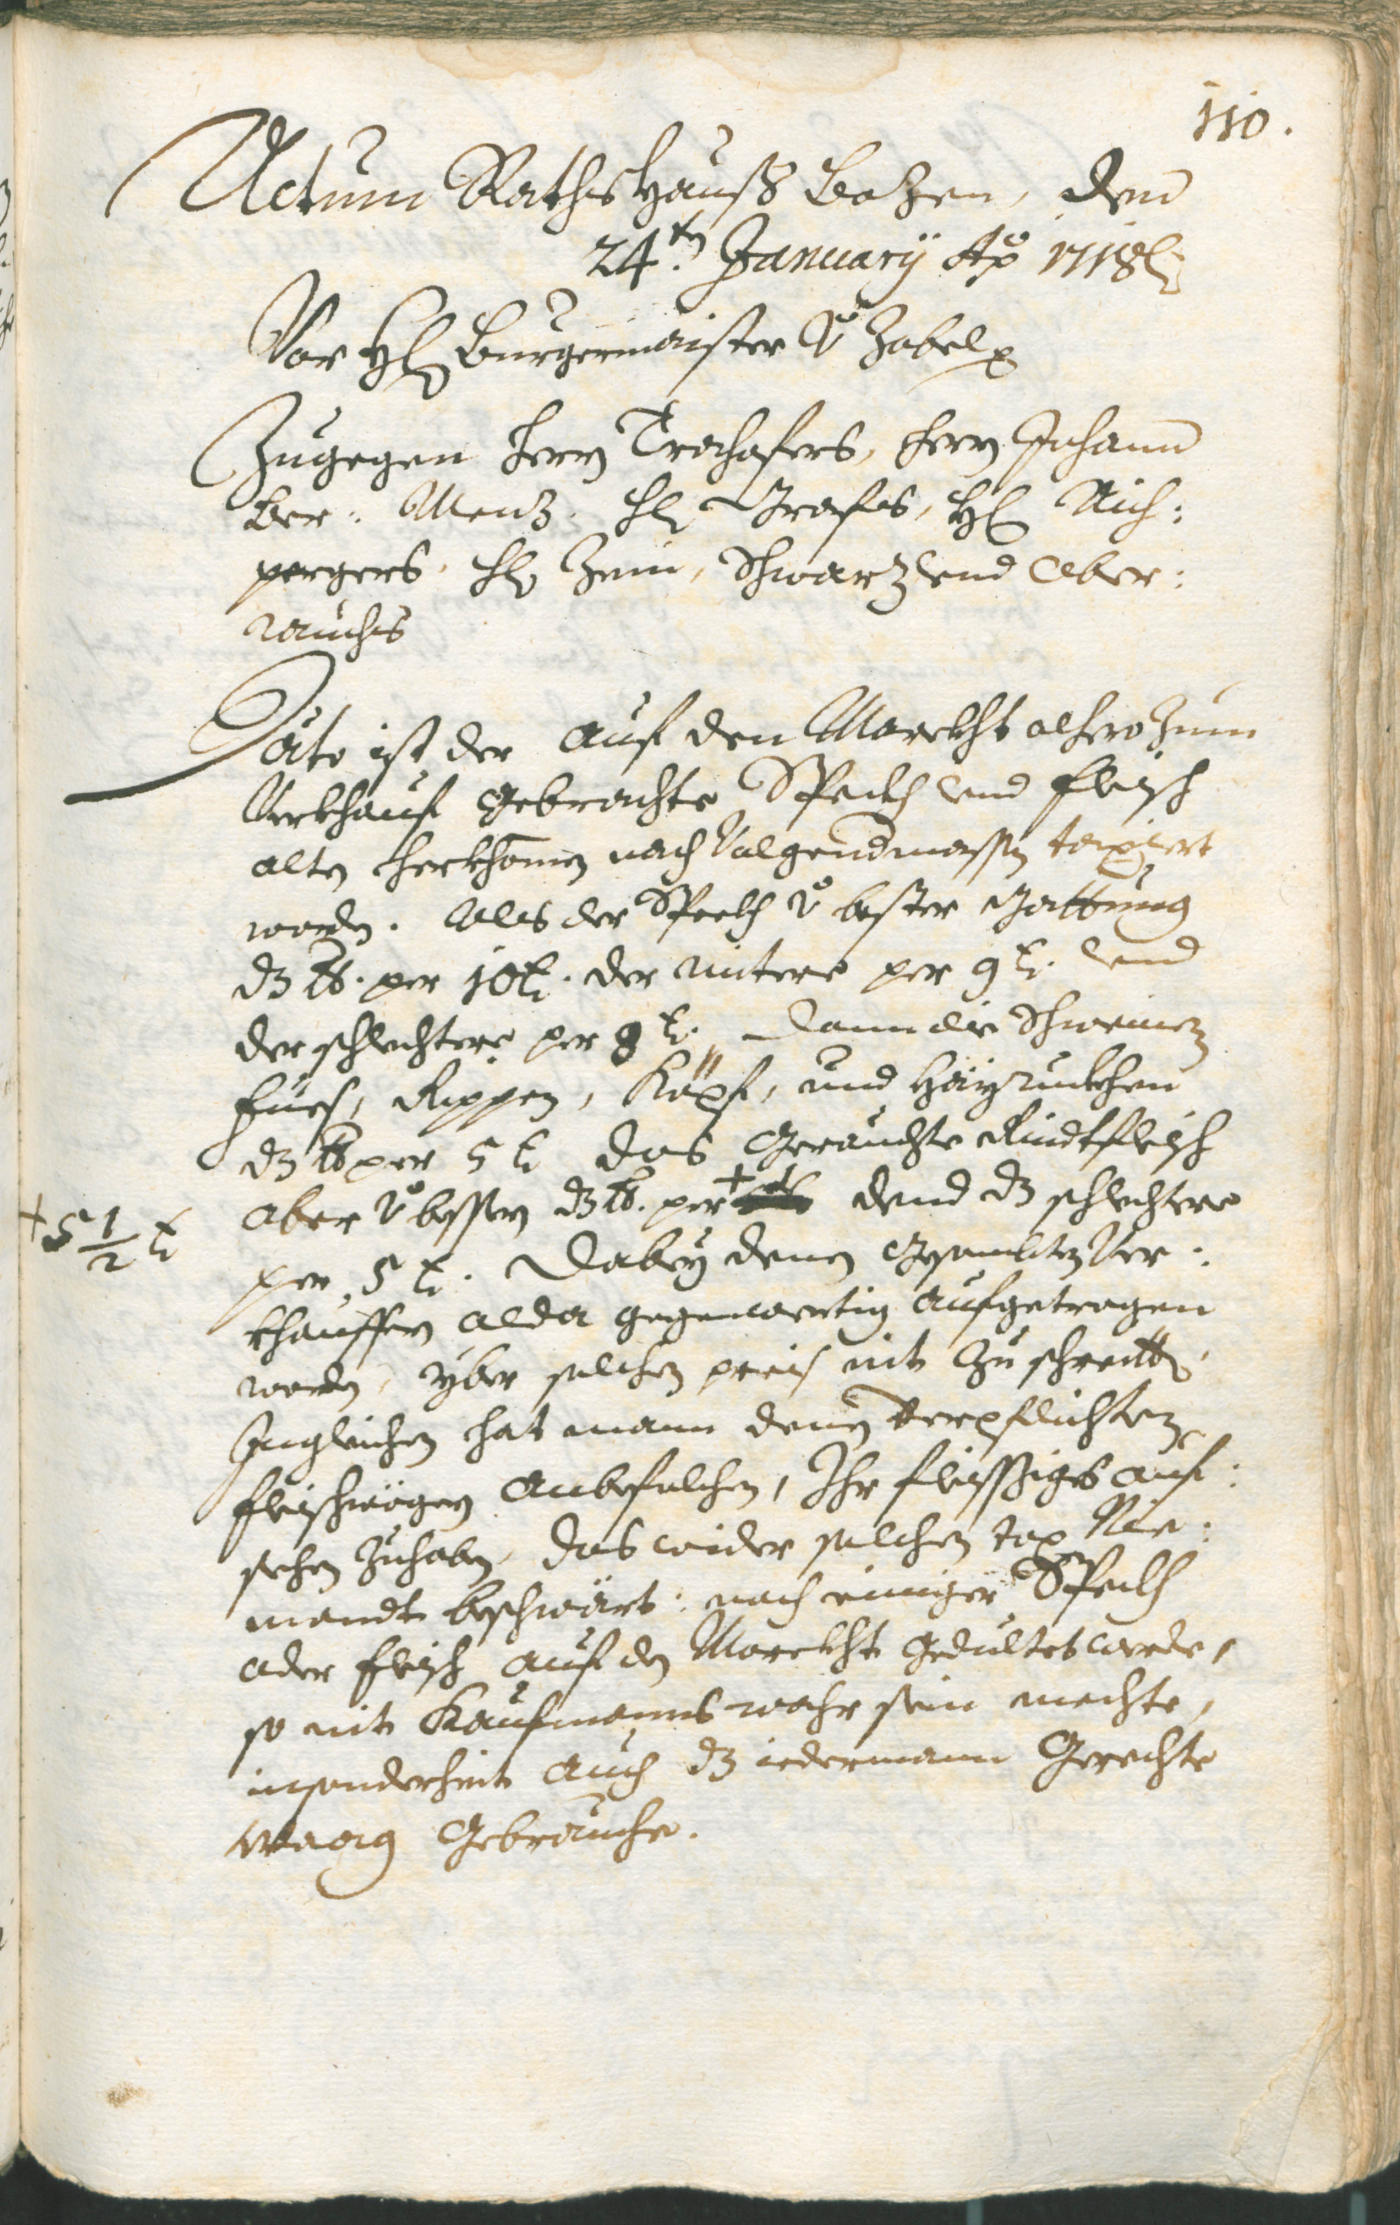 110.
Actum Rathshauß Bozen, den
24.ten January Ao 1718
Vor H Burgermaister v Zobel
Zugegen Herrn Trochofers, Herrn Johann
Ber: Menz. H Grafes, H Aich:
pergers, H Zein, Schwarz vnd Ober:
rauchs
Dato ist der auf den Marckht alhero zum
Verkhauf gebrachte Speckh vnd fleisch
alten herkhomen nach Volgendmassen taxiert
worden. Als der Speckh v bester Gattung
dz lb. per 10 k. der mitere per 9 k. vnd
der schlechtere per 8 k. Dann die Schweinen
fües, Rippen, Köpf, und
dz lb per 5 k das gerauchte Rindtfleisch
aber v bessern dz lb. per + vnd dz schlechtere
+ 5 1/2 k
per 5 k. Dabey denen gesambten Ver:
khauffern alda gegenwertig aufgetragen
worden, yber solchen preis nit zu schreitten.
Ingleichen hat mann denen verpflichten
fleischwögern anbefolchen, Ihr fleissiges auf:
sehen zuhaben, das wider solchen tax Nie:
mandt beschwärt: noch einiger Speckh
oder fleisch auf den Marckht gedultet werde,
so nit Kaufmanns wahr sein mechte,
insonderheit auch dz iedermann Gerechte
Waag gebrauche.